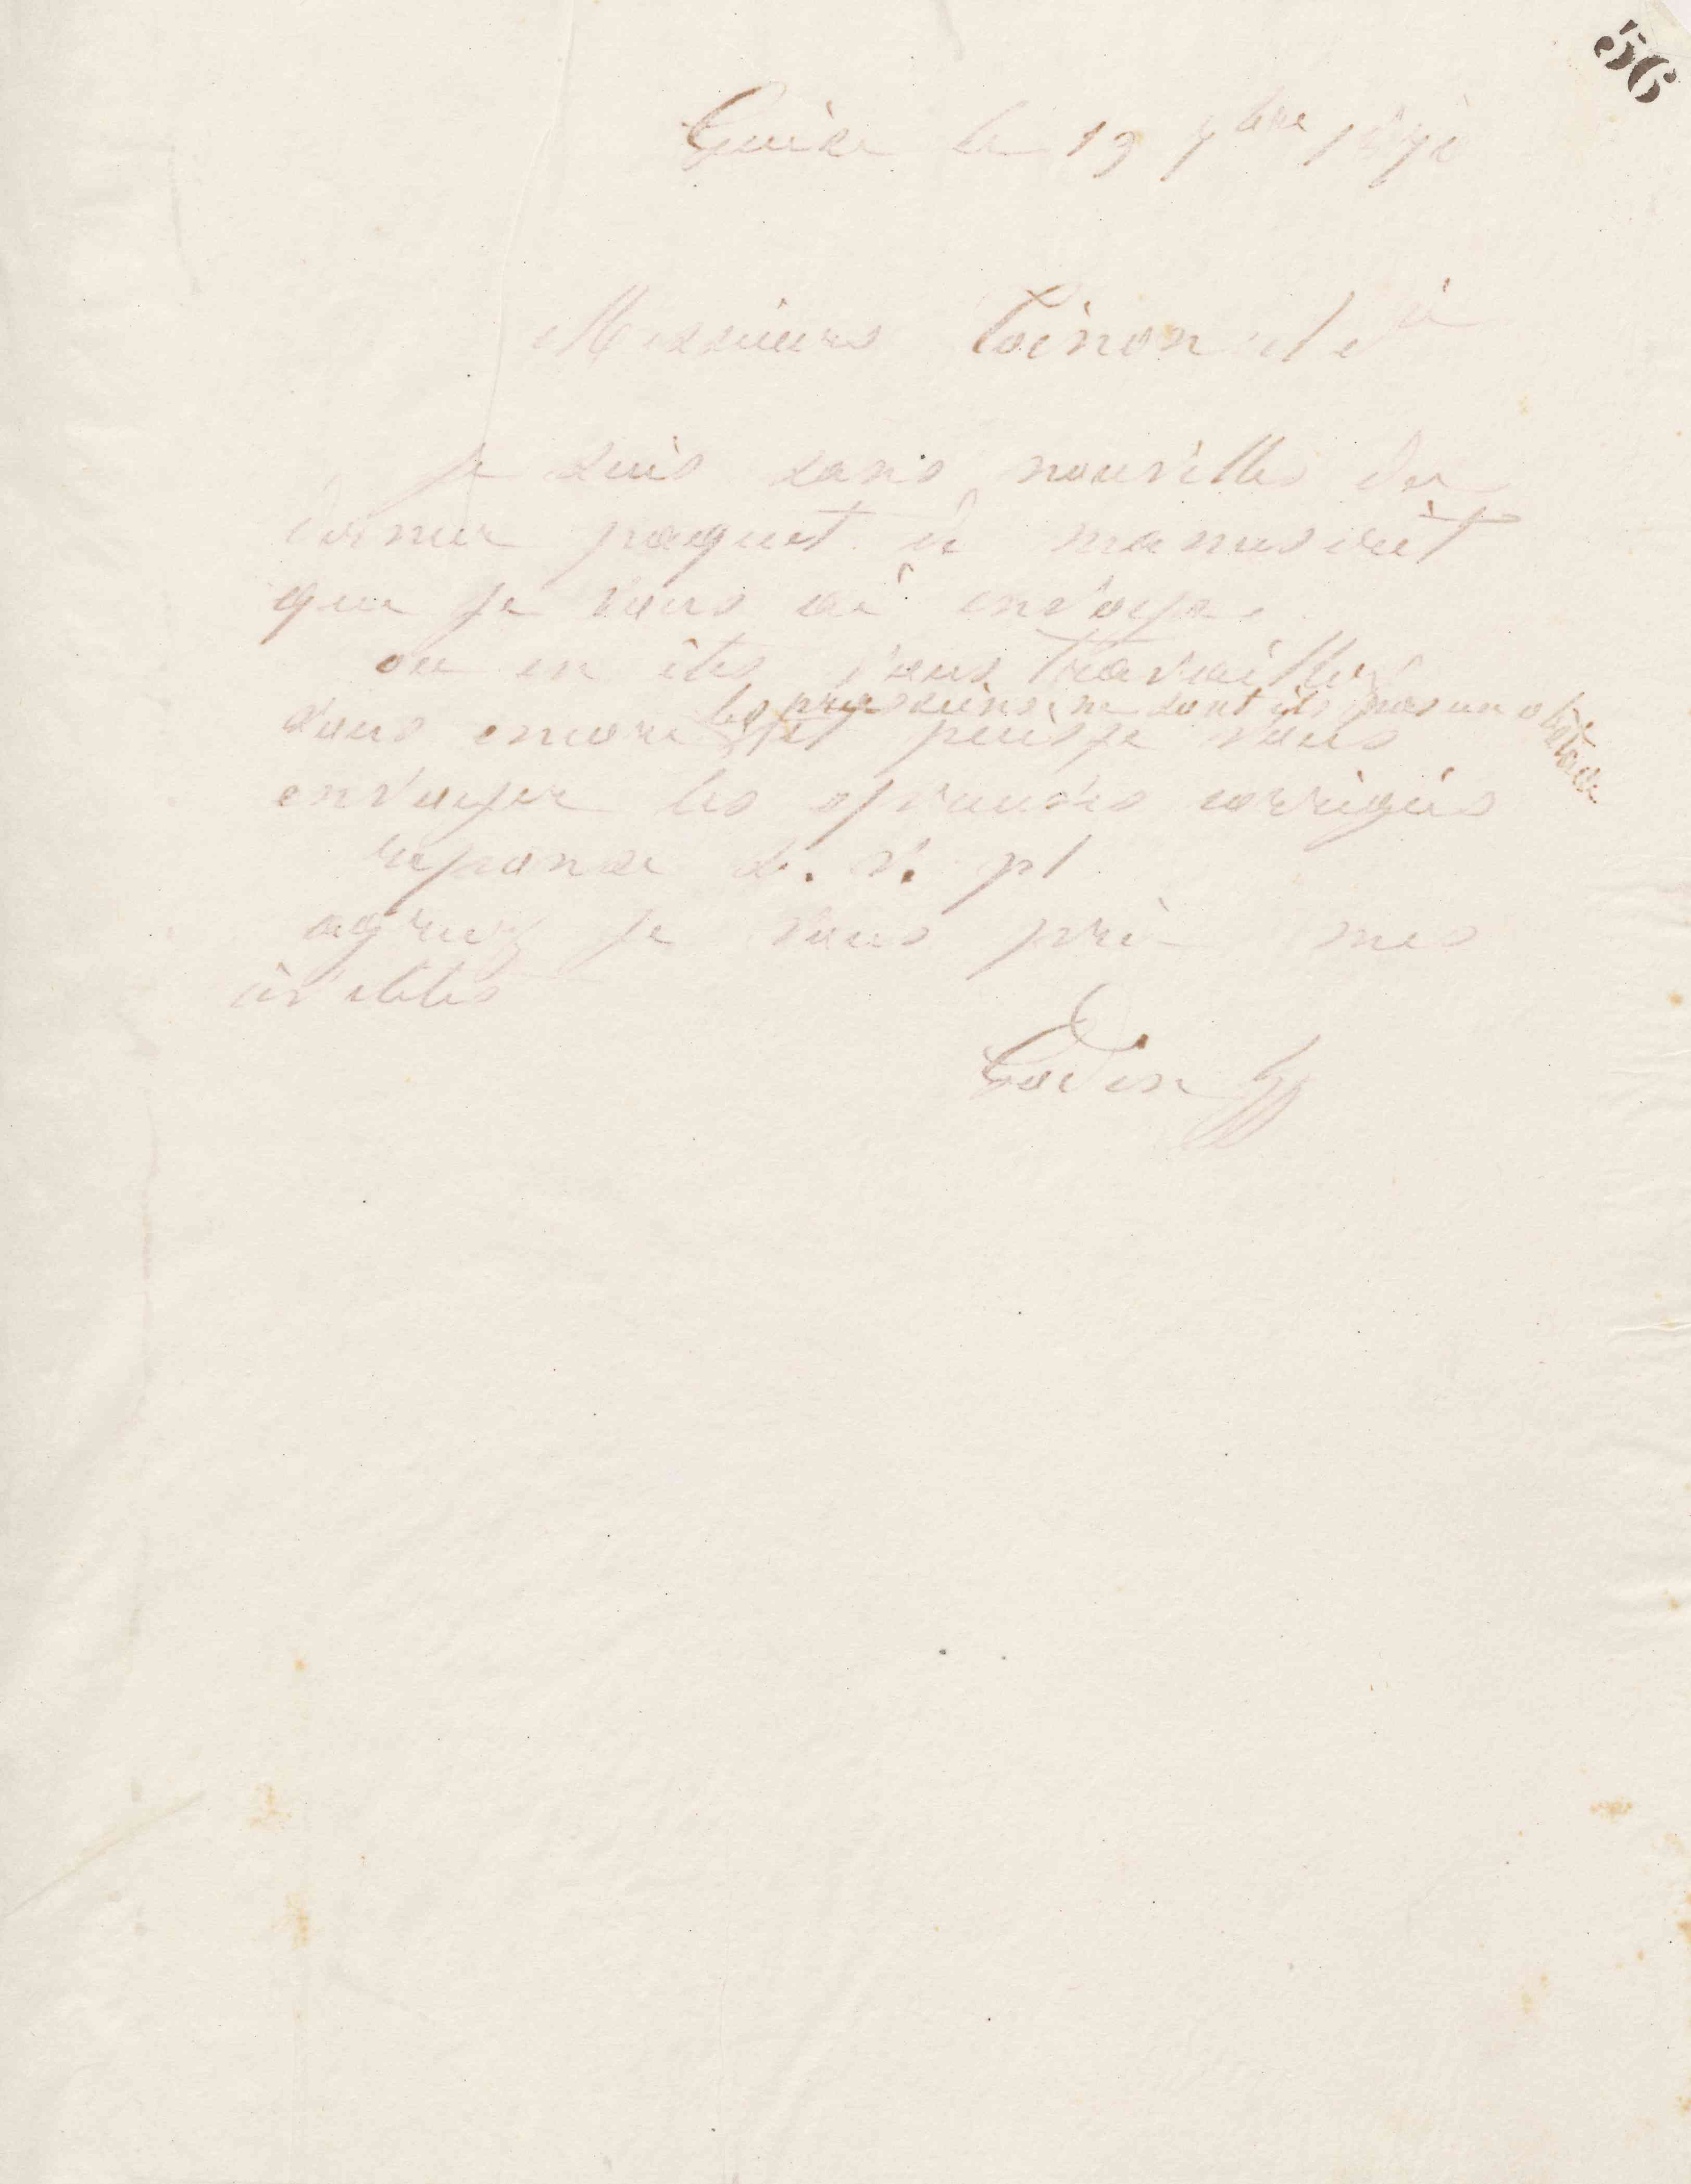 56
Guise le 19 7bre 1870
Messieurs Toinon et Cie
Je suis sans nouvelles du
dernier paquet de manuscrit
que je vous ai envoyé.
ou en êtes vous travaillez
vous encore les prussiens ne sont ils pas un obstacle
et puis je vous
envoyer les epreuves corrigées
reponse s. v. pl
agreez je vous prie mes
civilités
Godin